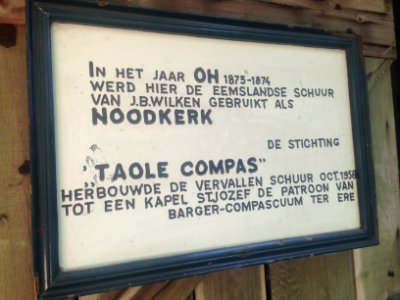 IN HET JAAR OH 1873-1874
WERD HIER DE EEMSLANDSE SCHUUR
VAN J.B.WILKEN GEBRUIKT ALS
NOODKERK
DE STICHTING
"TAOLE COMPAS"
HERBOUWDE DE VERVALLEN SCHUUR OCT.1958
TOT EEN KAPEL ST.JOZEF DE PATROON VAN
BARGER-COMPASCUUM TER ERE